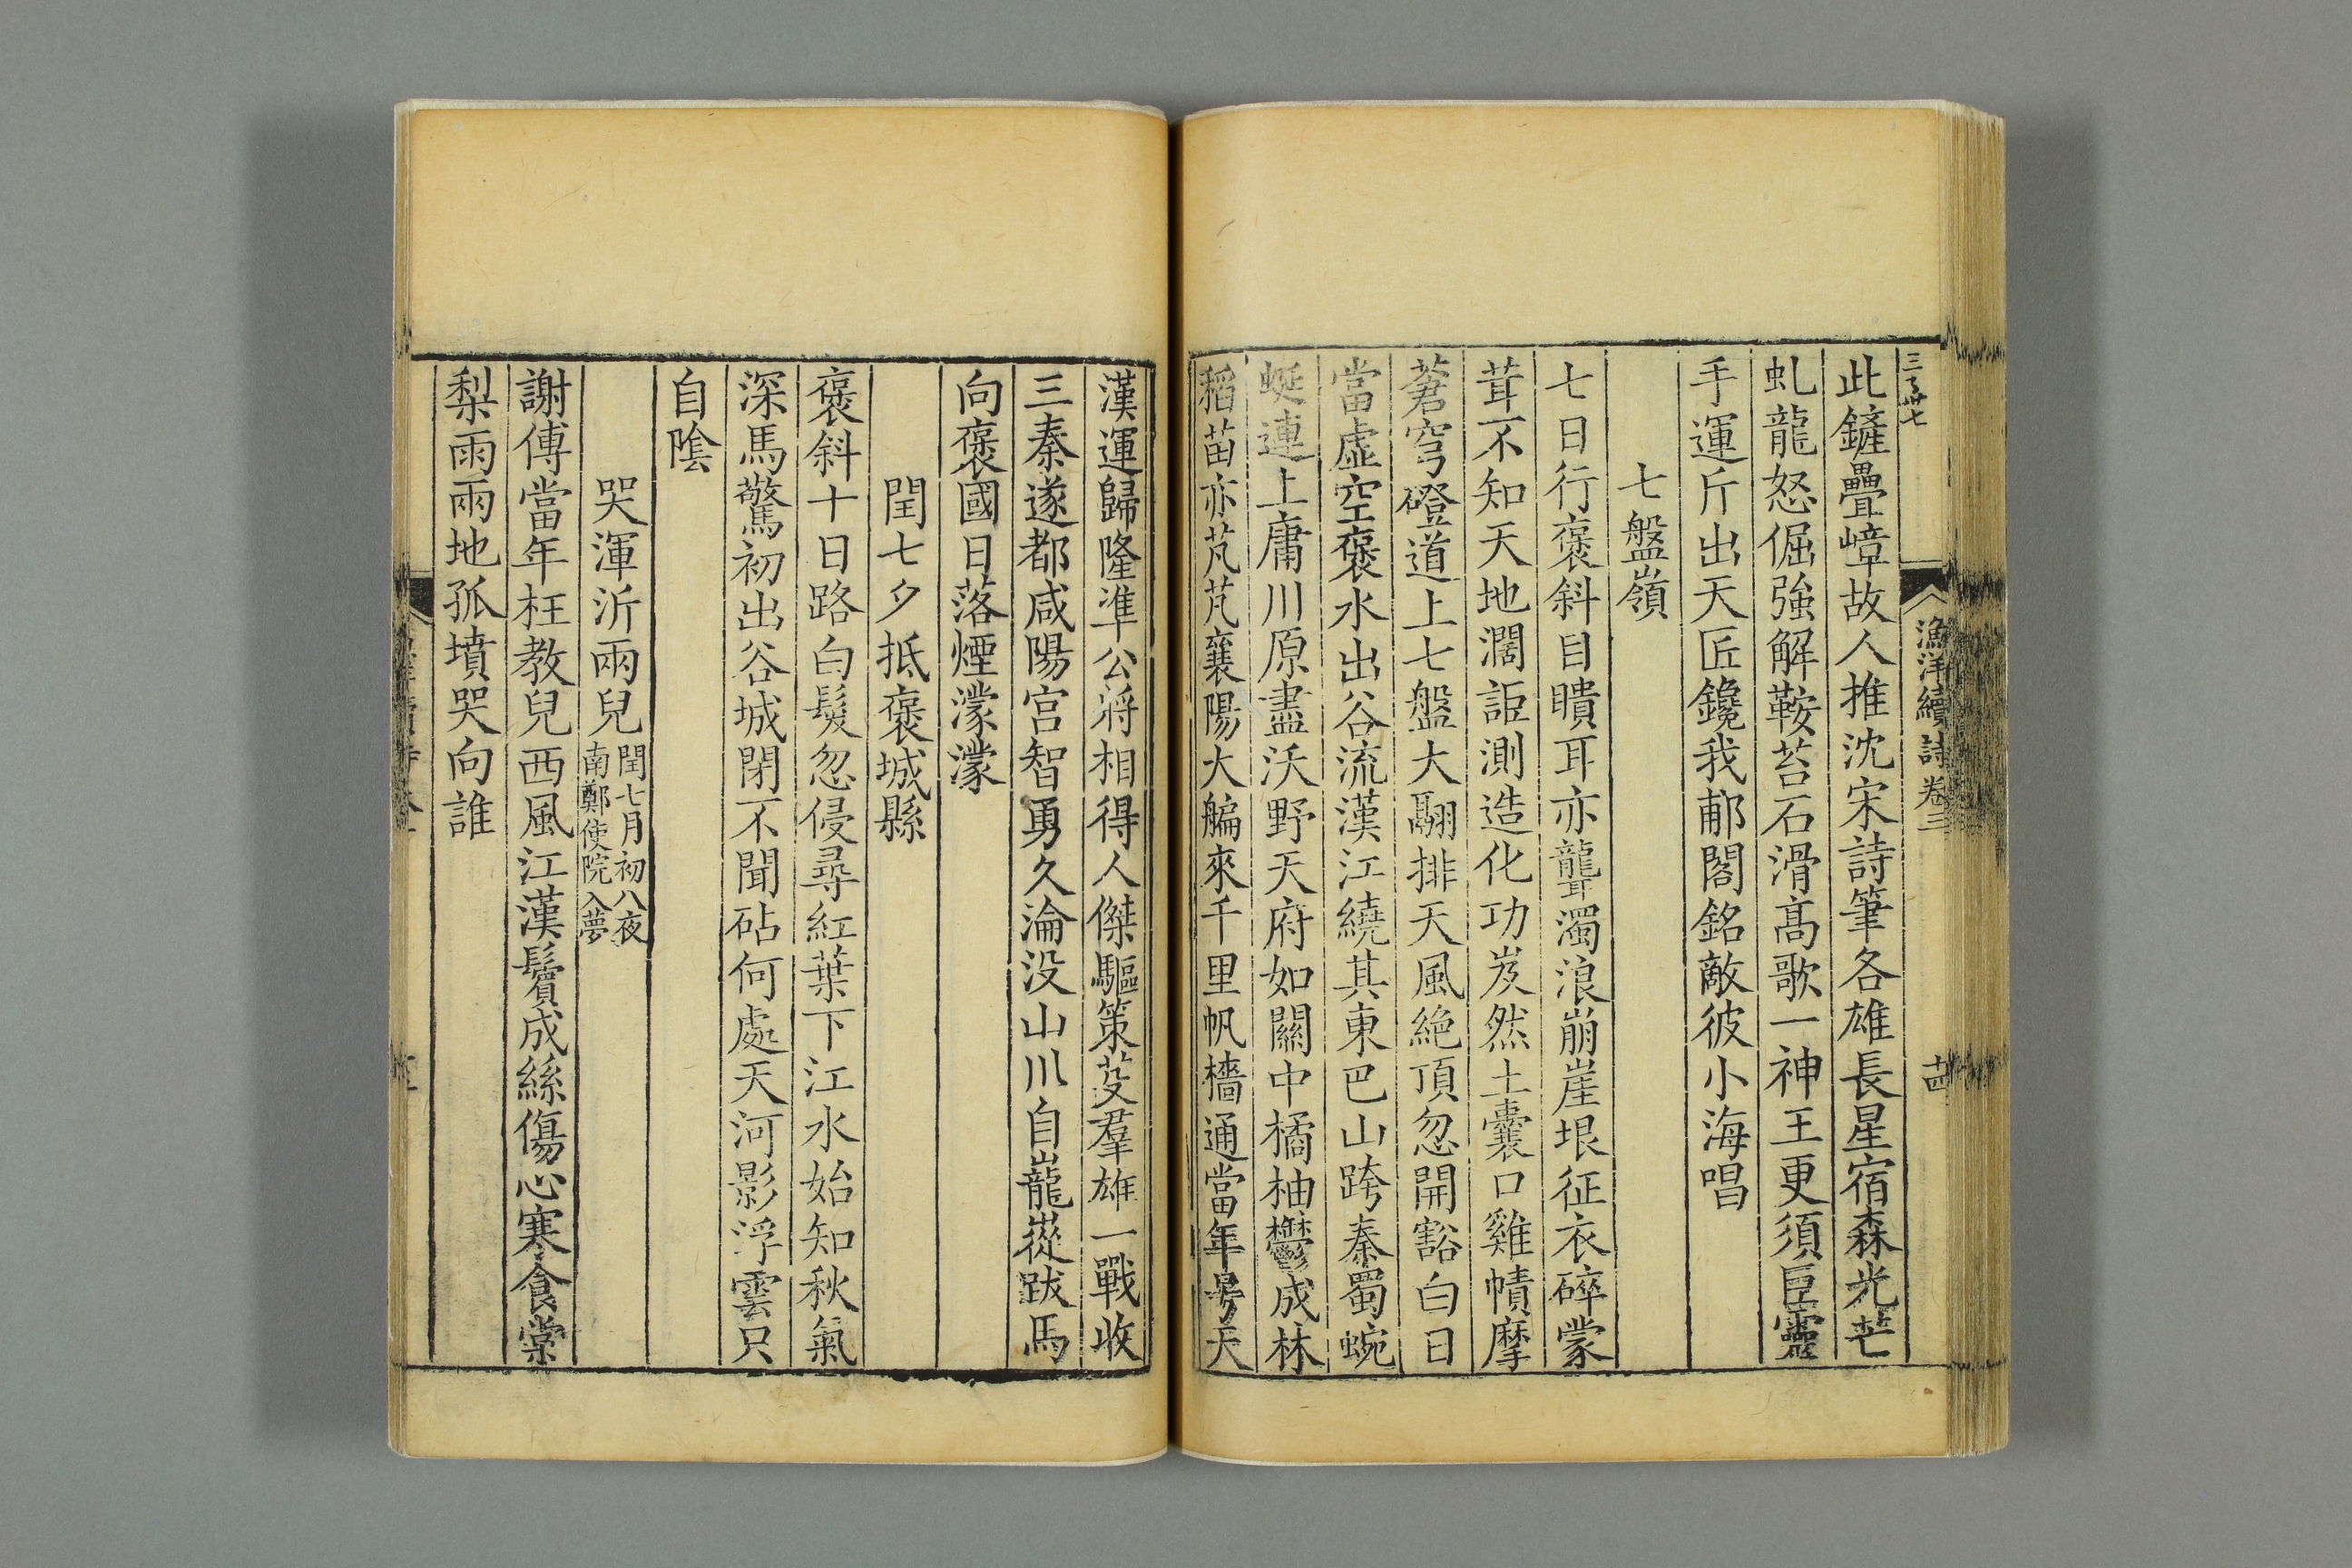 漁洋續詩卷三
十四
此鏟疊嶂故人推沈宋詩筆各雄長星宿森光芒
虬龍怒倔強解鞍苔石滑高歌一神王更須巨靈
手運斤出天匠鑱我郙閣銘敵彼小海唱
七盤嶺
七日行褒斜目瞶耳亦聾濁浪崩崖垠征衣碎蒙
茸不知天地濶詎測造化功岌然土囊口雞幘摩
蒼穹磴道上七盤大騸排天風絶頂忽開豁白日
當虛空褒水出谷流漢江繞其東巴山跨秦蜀蜿
蜒連上庸川原盡沃野天府如關中橘柚鬱成林
稻苗亦芃芃襄陽大艑來千里帆檣通當年号天
漢運歸隆準公將相得人傑驅策芟羣雄一戰收
三秦遂都咸陽宫智勇久淪没山川自巃嵸跋馬
向褒國日落煙濛濛
閏七夕抵褒城縣
褒斜十日路白髮忽侵尋紅葉下江水始知秋氣
深馬驚初出谷城閉不聞砧何處天河影浮雲只
自陰
哭渾沂兩兒閏七月初八夜南鄭使院入夢
謝傅當年枉教兒西風江漢鬢成絲傷心寒食棠
梨雨兩地孤墳哭向誰